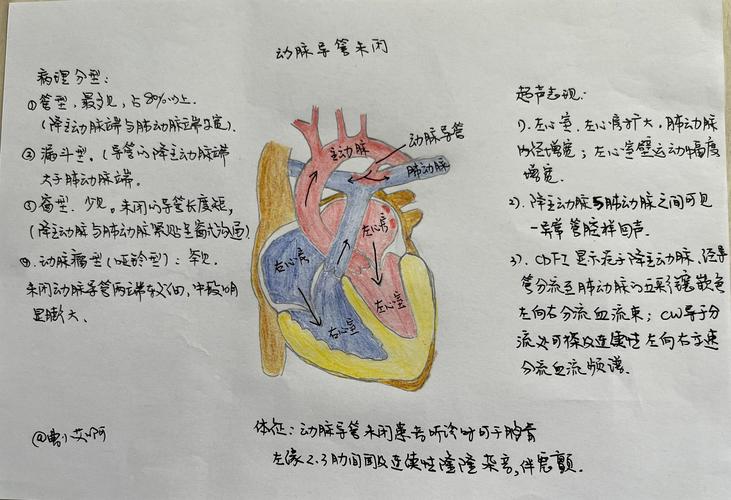 动脉导管未闭
病理分型:
①管型,最多见,占80%以上.
(降主动脉端与肺动脉端等宽).
②漏斗型,(导管的降主动脉端
大于肺动脉端.
③窗型.少见.未闭的导管长度短,
(降主动脉与肺动脉紧贴呈窗式沟通)
④.动脉瘤型(哑铃型):罕见.
未闭动脉导管两端较细,中段明
显膨大.
主动脉
动脉导管
肺动脉
左心房
心房
左心室
右心室
超声表现:
1).左心室.左心房扩大,肺动脉
内径增宽;左心室壁运动幅度
增宽.
2).降主动脉与肺动脉之间可见
一异常管腔样回声.
3).CDFI显示起于降主动脉,经导
管分流至肺动脉的五彩镶嵌色
左向右分流血流束;CW导于分
流处可探及连续性左向右高速
分流血流频谱.
体征:动脉导管未闭患者听诊时可于胸骨
左缘2.3肋间闻及连续性隆隆杂音,伴震颤.
@曹小艾啊